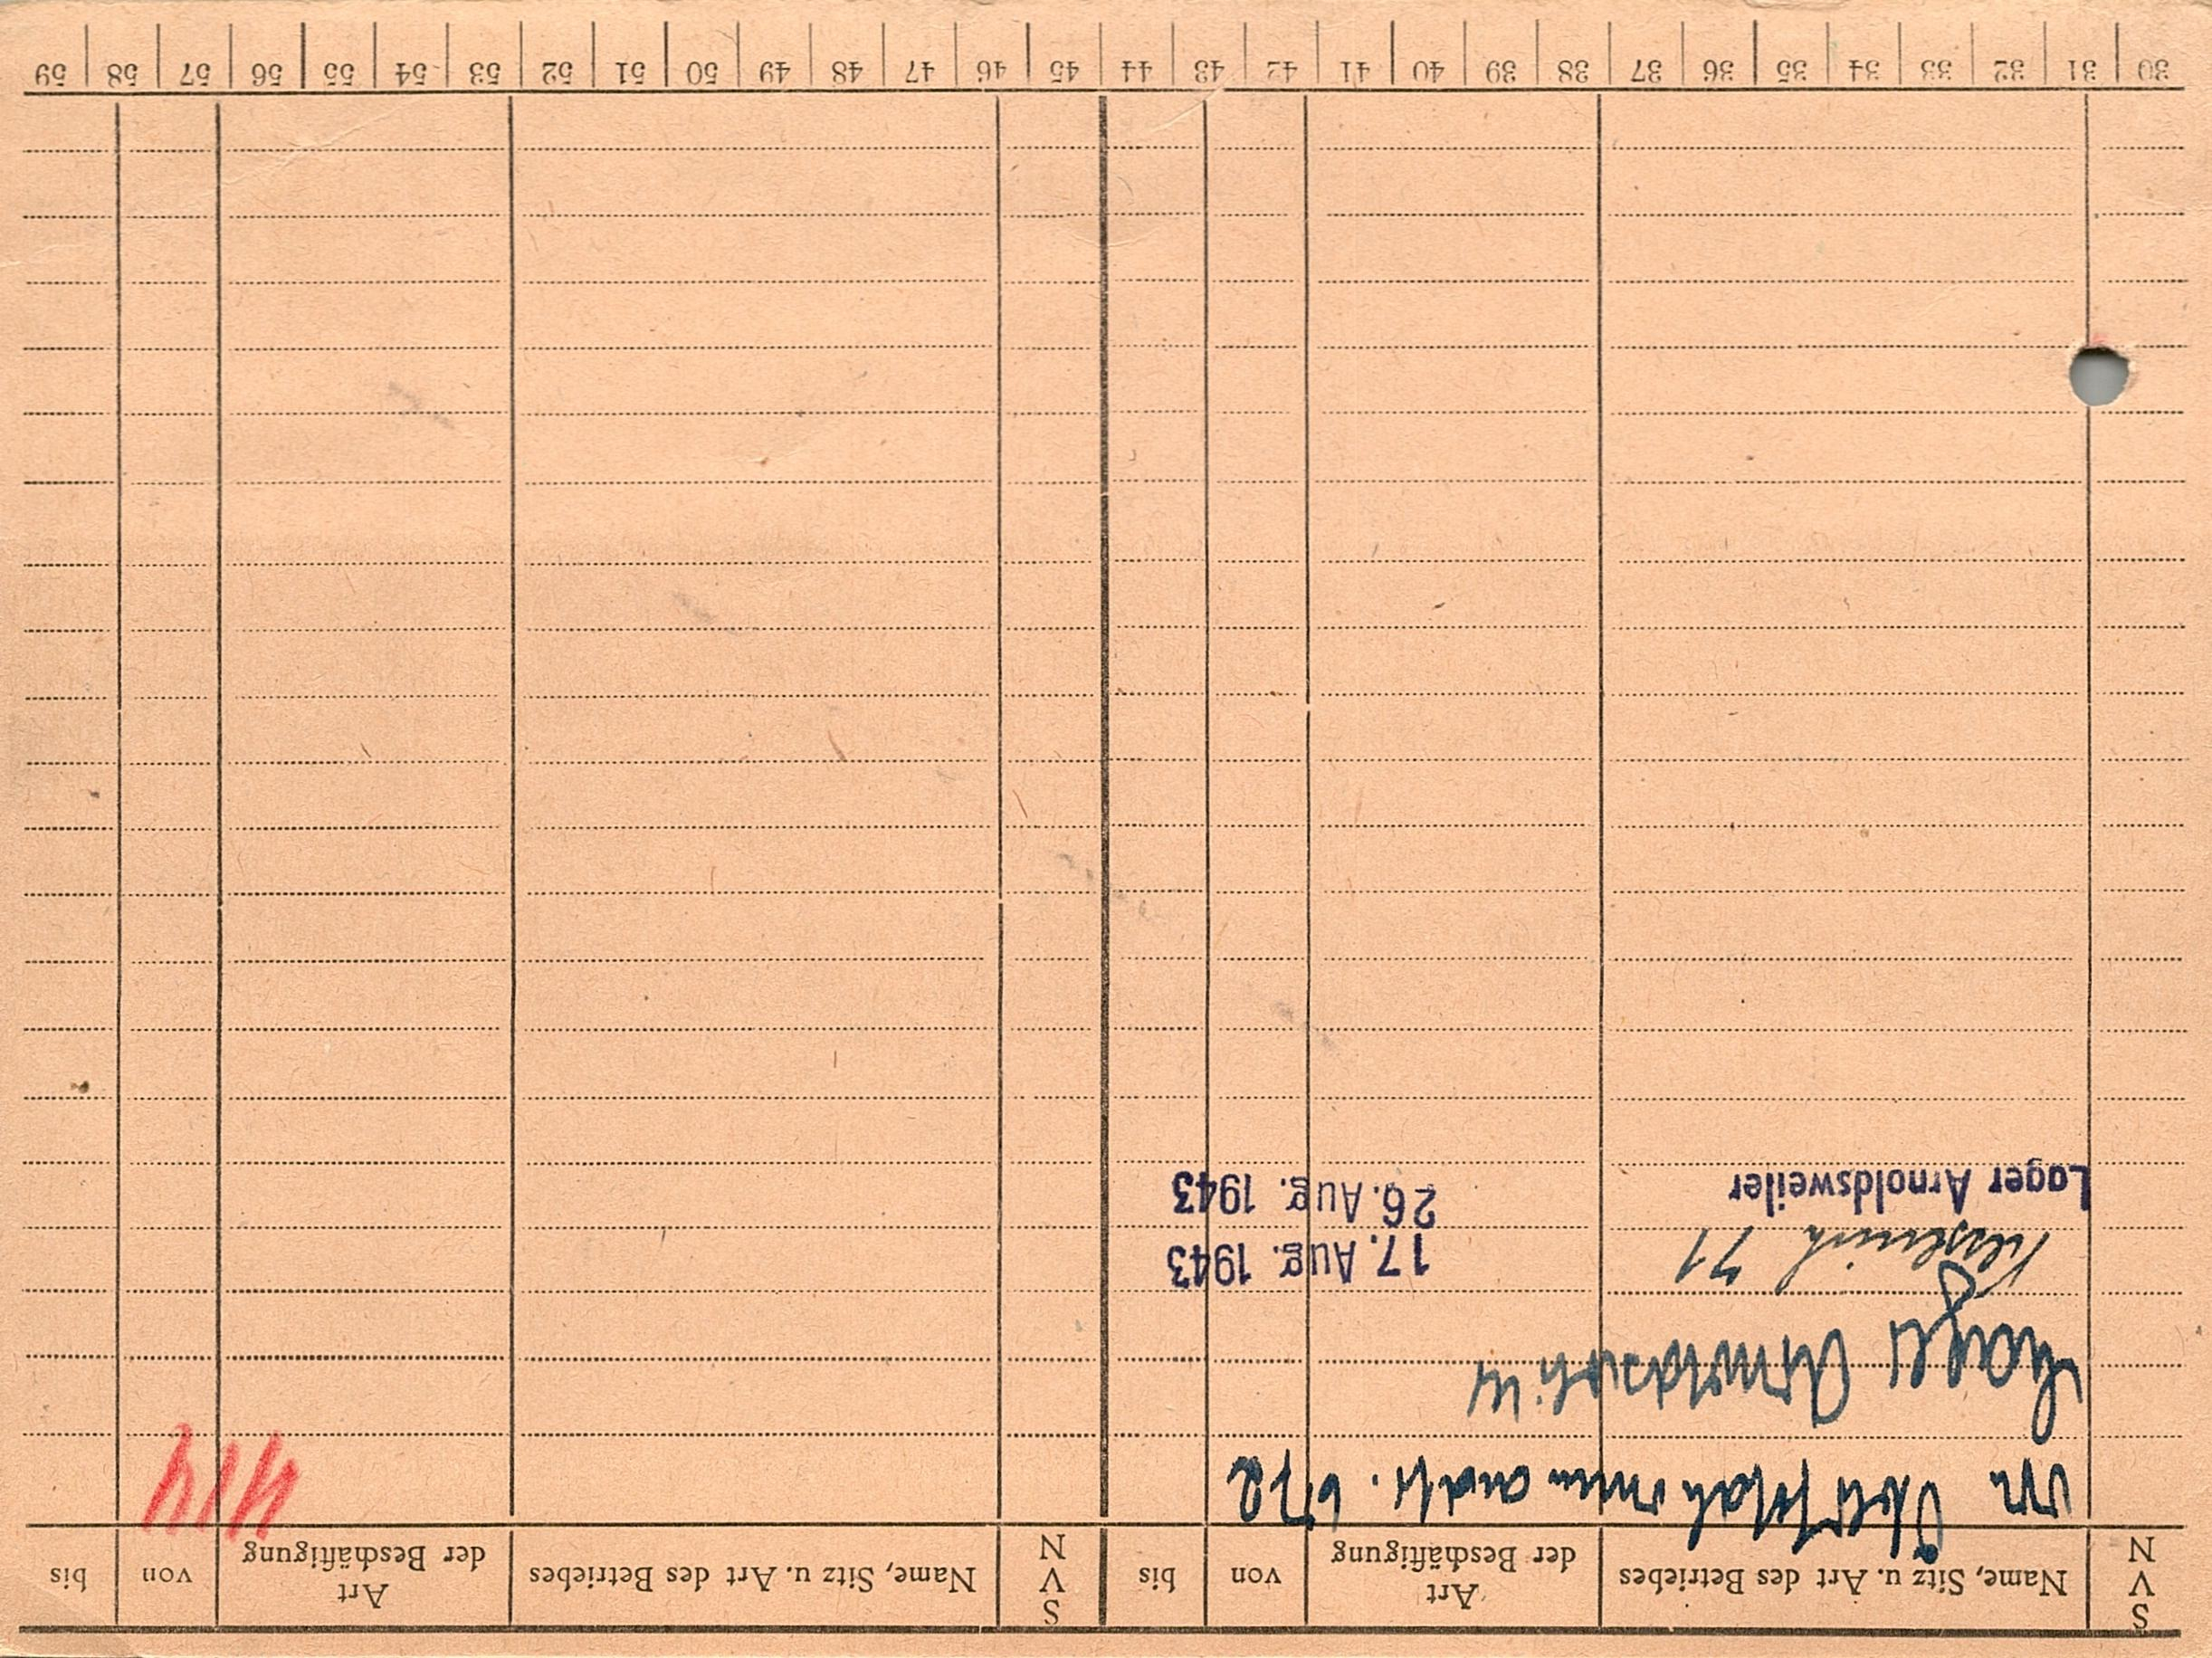 S V N
Name, Sitz u. Art des Betriebes
Art der Beschäftigung
von
bis
S V N
Name, Sitz u. Art des Betriebes
Art der Beschäftigung
von
bis
414
Lager Arnoldsweiler
71
17. Aug. 1943
Lager Arnoldsweiler
26. Aug. 1943
30 31 32 33 34 35 36 37 38 39 40 41 42 43 44 45 46 47 48 49 50 51 52 53 54 55 56 57 58 59